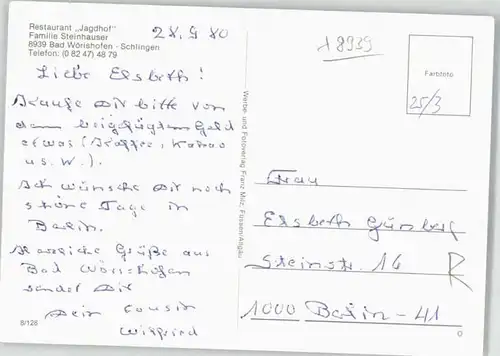 Restaurant „Jagdhof"
Familie Steinhauser
8939 Bad Wörishofen - Schlingen
Telefon: (0 82 47) 48 79
28.9.80
Liebe Elsbeth!
Kaufe Dir bitte von
dem beigefügten Geld
etwas (Kaffee, Kakao
u.s.w.).
Ich wünsche Dir noch
schöne Tage in
Berlin.
Herzliche Grüße aus
Bad Wörishofen
sendet Dir
Dein Cousin
Wilfried
8/126
Werbe- und Fotoverlag Franz Milz, Füssen/Allgäu
18939
Farbfoto
25/3
Frau
Elsbeth
Steinstr. 16
R
1000 Berlin - 41